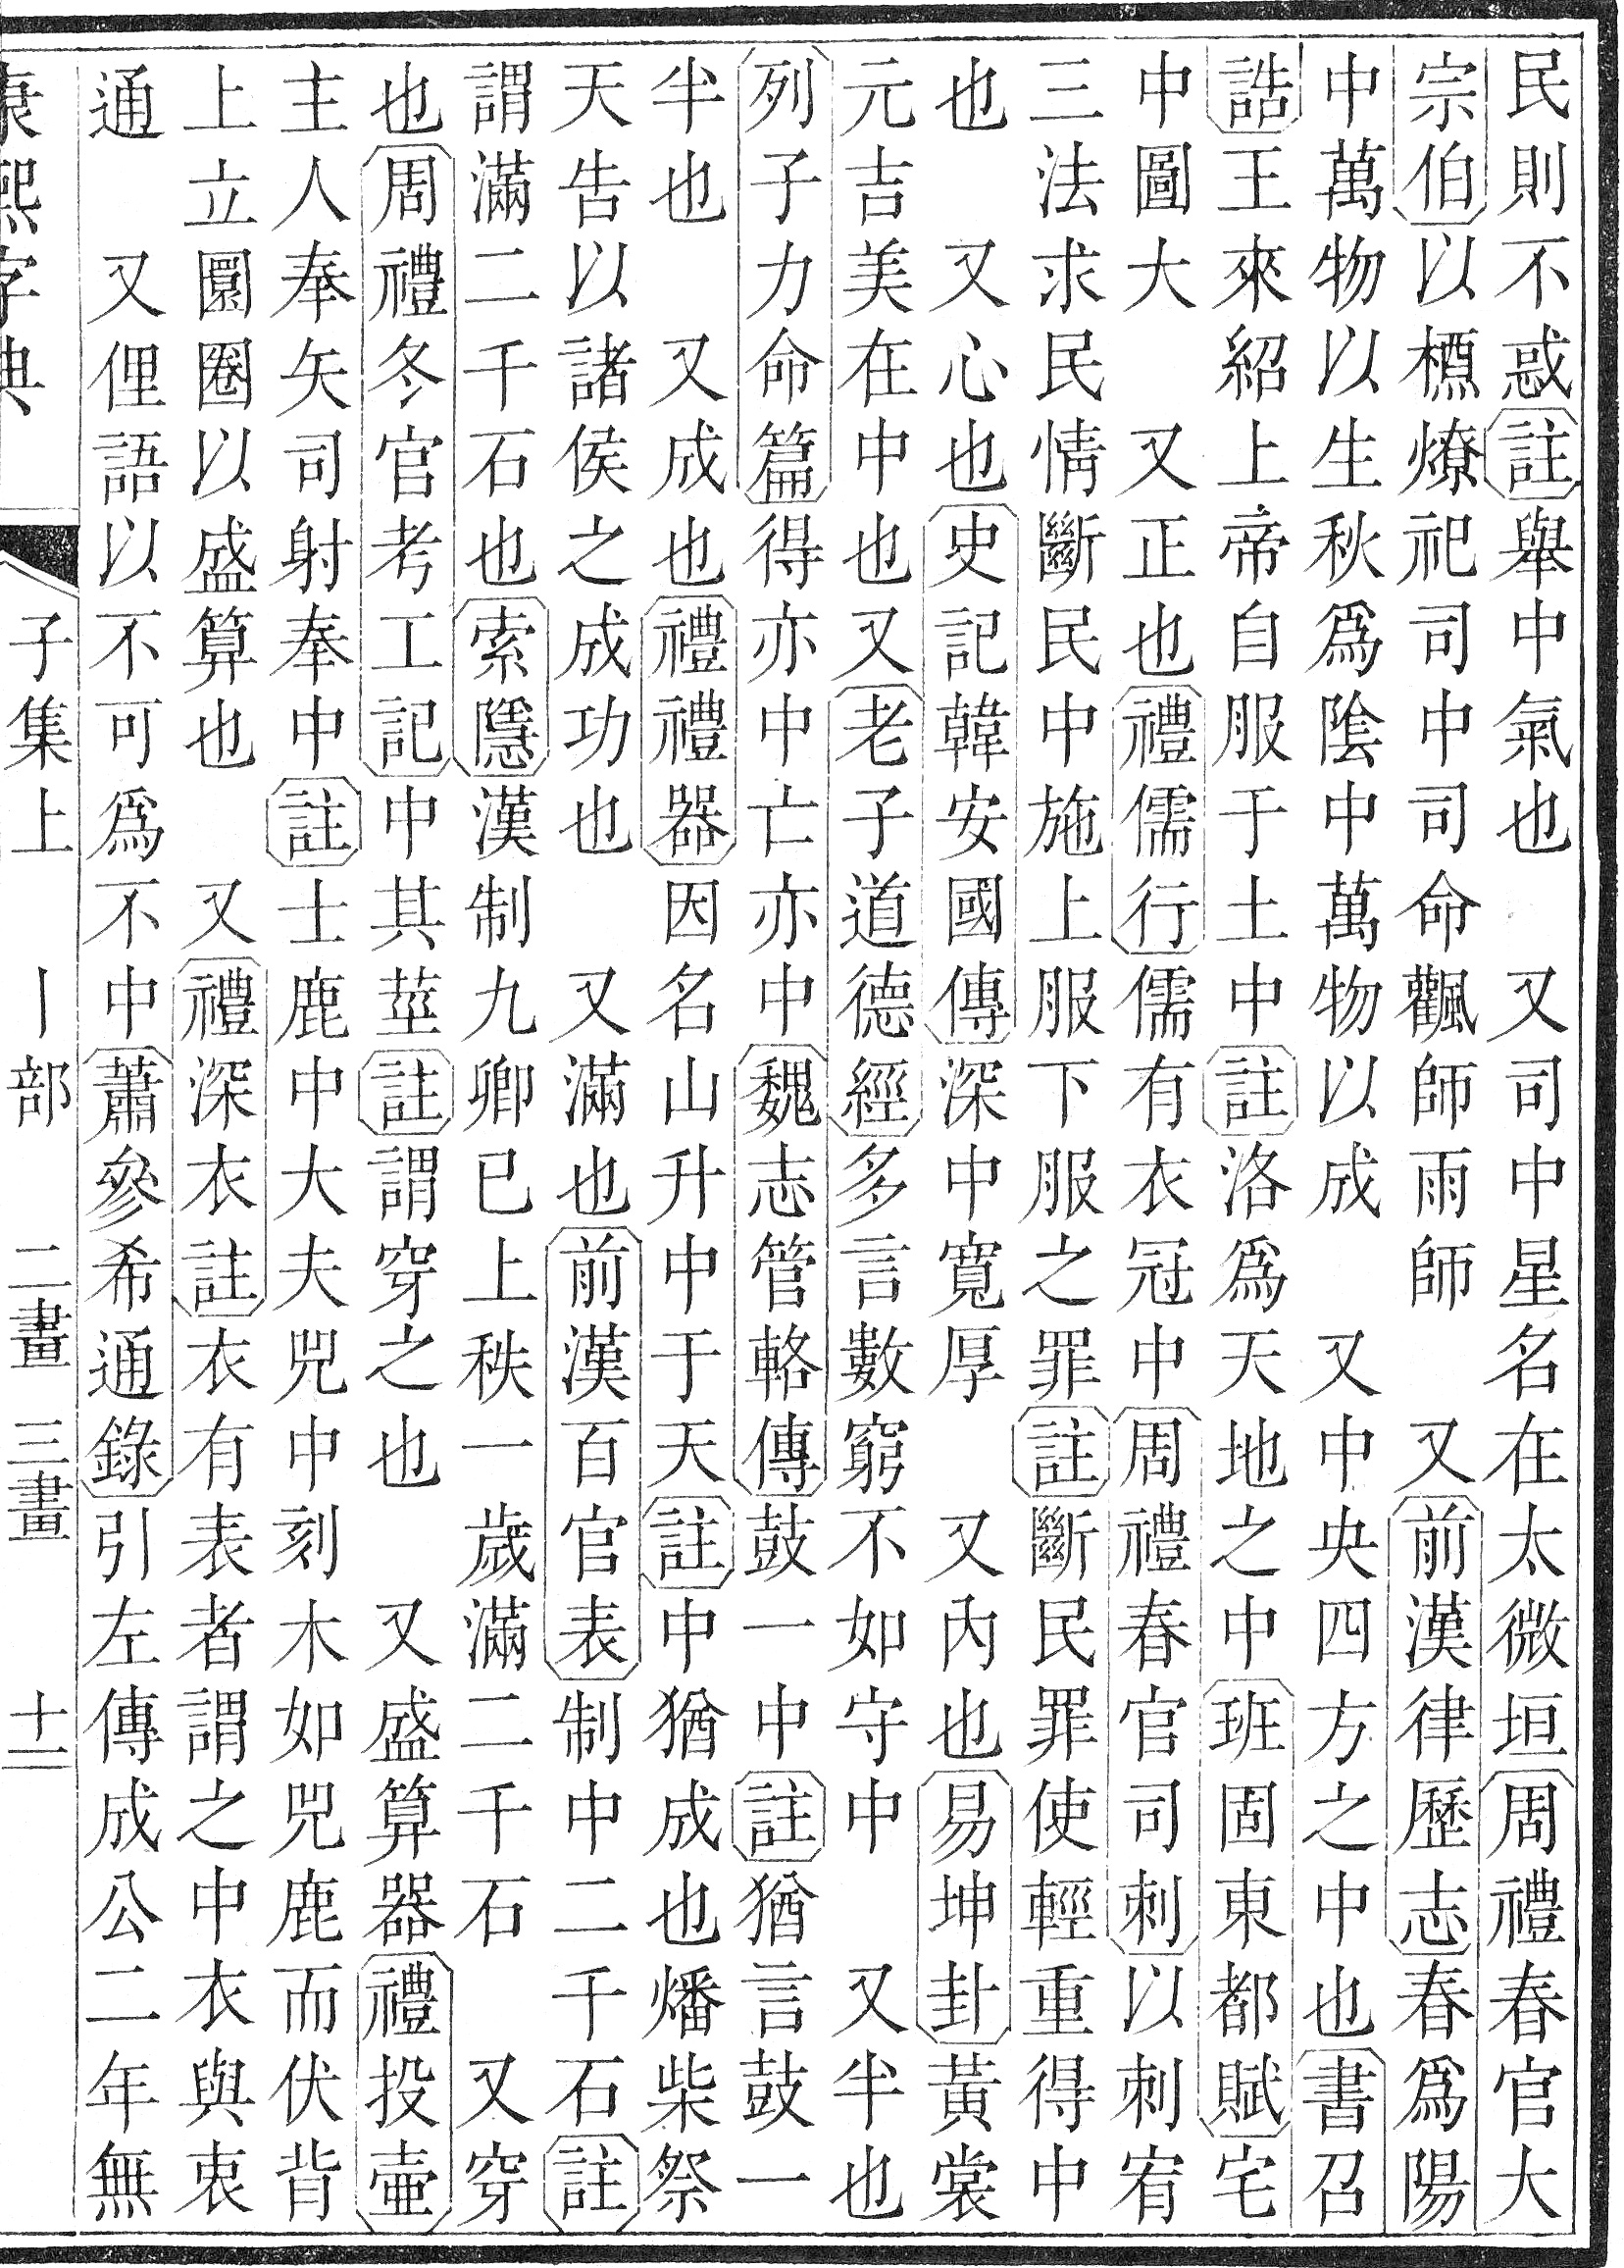 民則不惑註舉中氣也　又司中星名在太微垣周禮春官大
宗伯以槱燎祀司中司命飌師雨師　又前漢律歷志春爲陽
中萬物以生秋爲陰中萬物以成　又中央四方之中也書召
誥王來紹上帝自服于土中註洛爲天地之中班固東都賦宅
中圖大　又正也禮儒行儒有衣冠中周禮春官司刺以刺宥
三法求民情斷民中施上服下服之罪註斷民罪使輕重得中
也　又心也史記韓安國傳深中寬厚　又內也易坤卦黃裳
元吉美在中也又老子道德經多言數窮不如守中　又半也
列子力命篇得亦中亡亦中魏志管輅傳鼓一中註猶言鼓一
半也　又成也禮禮器因名山升中于天註中猶成也燔柴祭
天告以諸侯之成功也　又滿也前漢百官表制中二千石註
謂滿二千石也索隱漢制九卿已上秩一歲滿二千石　又穿
也周禮冬官考工記中其莖註謂穿之也　又盛算器禮投壺
主人奉矢司射奉中註士鹿中大夫兕中刻木如兕鹿而伏背
上立圜圈以盛算也　又禮深衣註衣有表者謂之中衣與衷
通　又俚語以不可爲不中蕭參希通錄引左傳成公二年無
康熙字典　子集上　丨部　二畫　三畫　十一